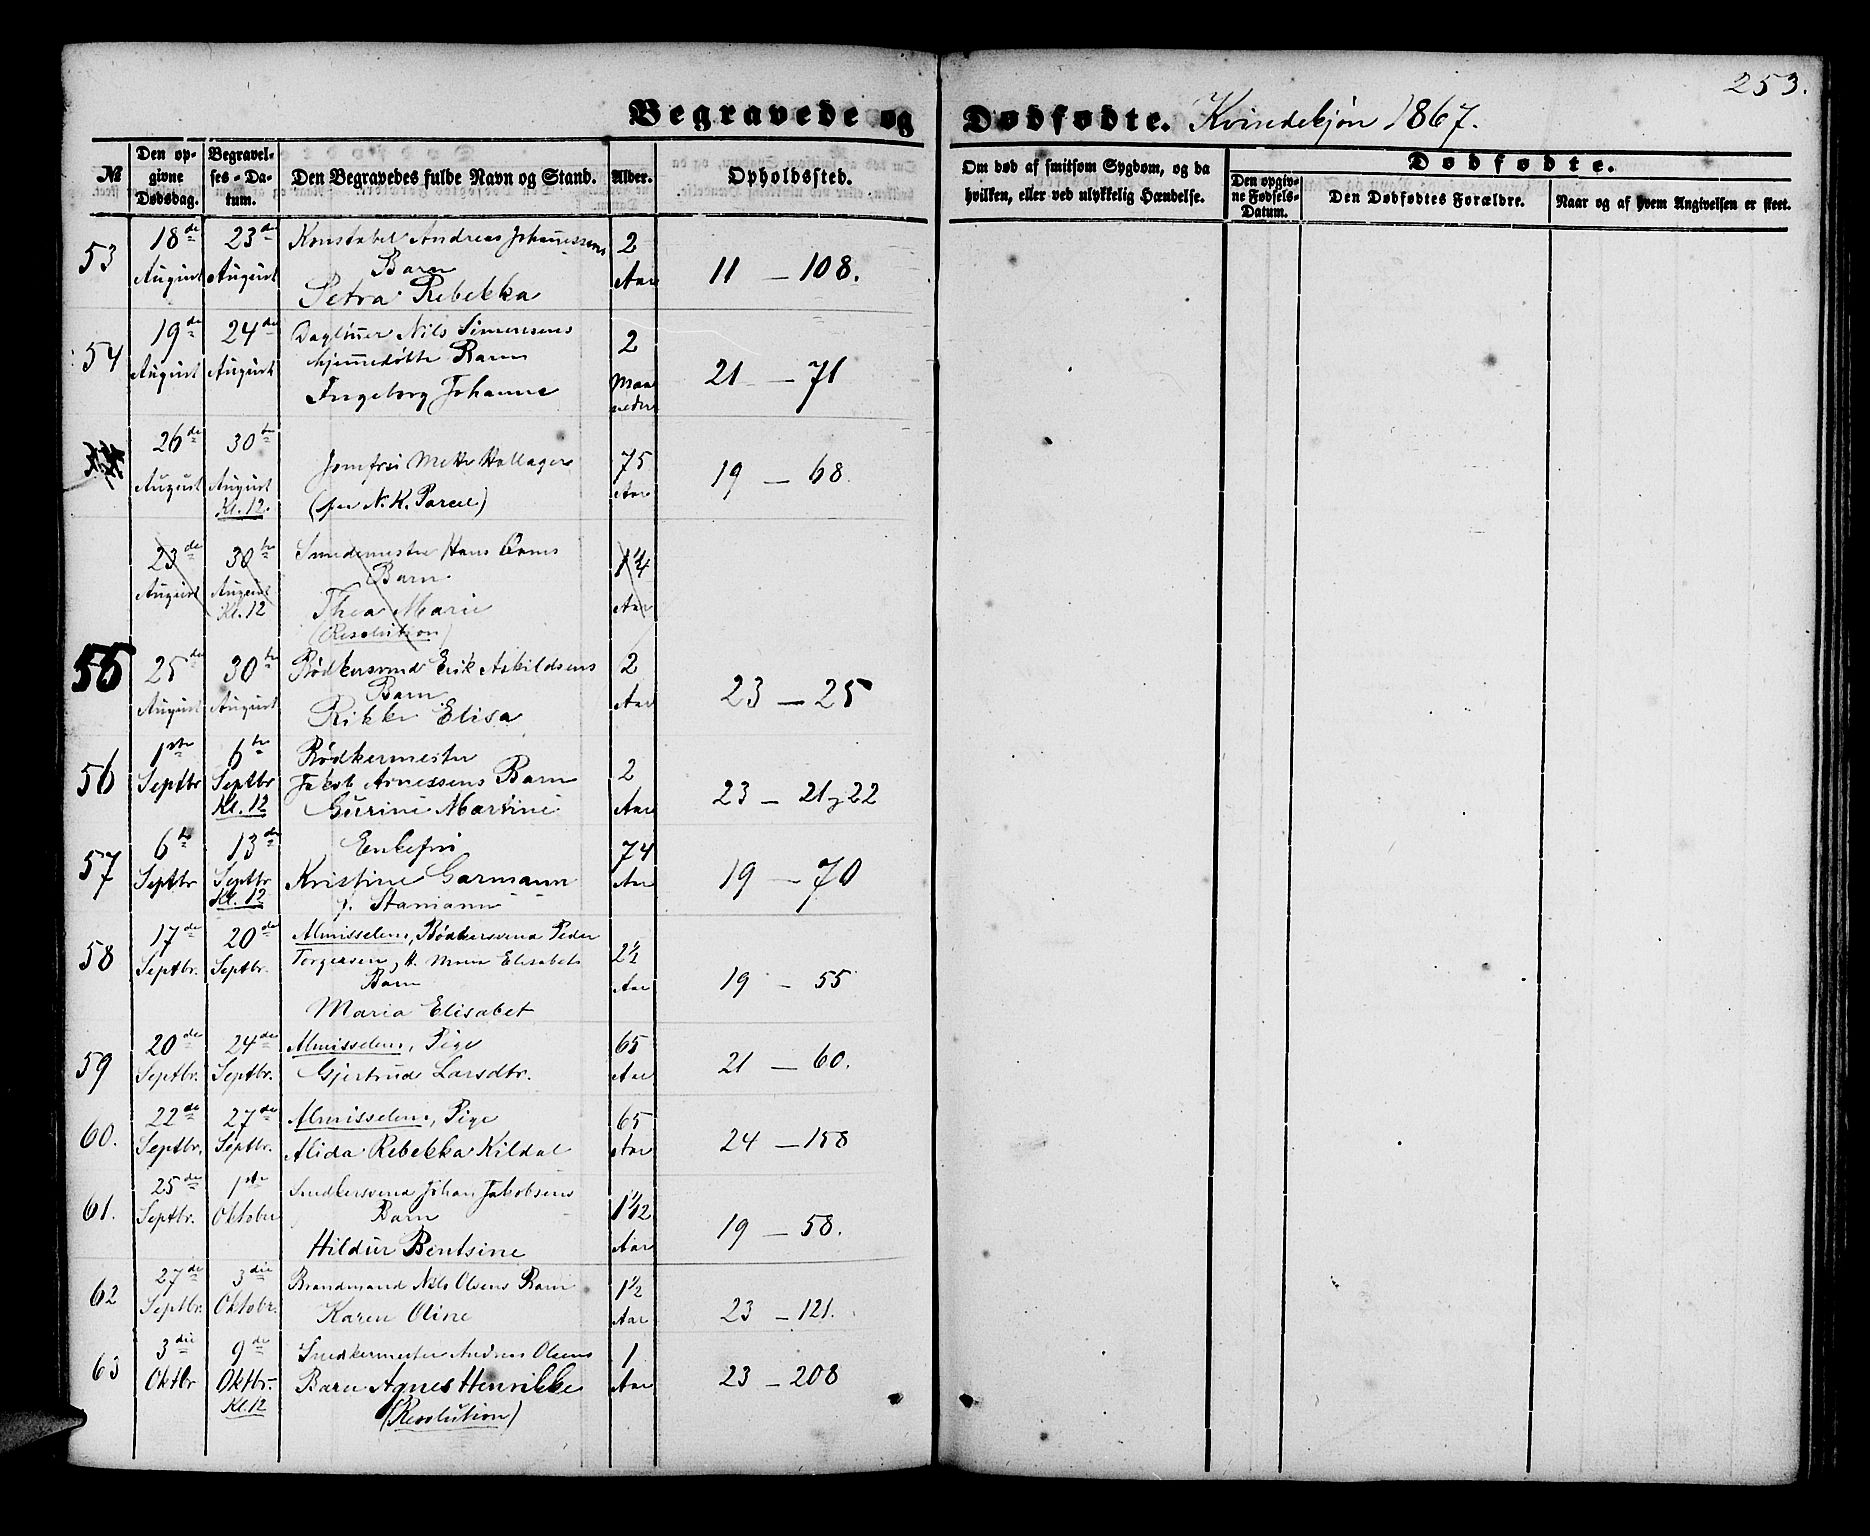 253.
Begravede og Dødfødte. Kvindekjøn 1867.
№
Den opgivne Dødsdag.
Begravelses-Datum.
Den Begravedes fulde Navn og Stand.
Alder.
Opholdssted.
Om død af smitsom Sygdom, og da hvilken, eller ved ulykkelig Hændelse.
Dødfødte.
Den opgivne Fødsels-Datum.
Den Dødfødtes Forældre.
Naar og af hvem Angivelsen er skeet.
53 18de August 23de August Konstabel Andreas Johannessens 2 Aar 11 — 108.
Barn
Petra Rebekka
54 19de August 24de August Nils Simonsens 2 Maaneder 21 — 71
hjemmedøbte Barn
Ingeborg Johanne
26de August 30te August Kl. 12. Jomfru Mette Hallager 75 Aar 19 — 68.
(per N. K. Parcel)
23de August 30te August Kl. 12 Smedemester Hans 1 1/4 Aar
Barn
Thea Marie
(Resolution)
55 25de August 30te August Bødkersvend Erik Askildsens 2 Aar 23 — 25
Barn
Rikke Elisa
56 1ste Septbr 6te Septbr Kl. 12 Bødkermester 2 Aar 23 — 21 22
Jakob Arnessens Barn
Gurine Martine
57 6te Septbr 13de Septbr Kl. 12 Enkefru 74 Aar 19 — 70
Kristine Garmann
f. Stamann
58 17de Septbr. 20de Septbr. Almisselem, Bødkersvend Peder 2 1/2 Aar 19 — 55
Torgersen, Elisabets
Barn
Maria Elisabet
59 20de Septbr. 24de Septbr. Almisselem, Pige 65 Aar 21 — 60.
Gjertrude Larsdtr.
60. 22de Septbr. 27de Septbr. Almisselem, Pige 65 Aar 24 — 158
Alida Rebekka Kildal
61. 25de Septbr. 1ste Oktober Snedkersvend Johan Jakobsens 1 1/12 Aar 19 — 58.
Barn
Hildur Bentsine
62 27de Septbr. 3die Oktobr. Brandmand Nils Olsens Barn 1 1/2 Aar 23 — 121.
Karen Oline
63 3die Oktbr 9de Oktbr. Kl. 12 Snedkermester Andreas Olsens 1 Aar 23 — 208
Barn Agnes Henrikke
(Resolution)